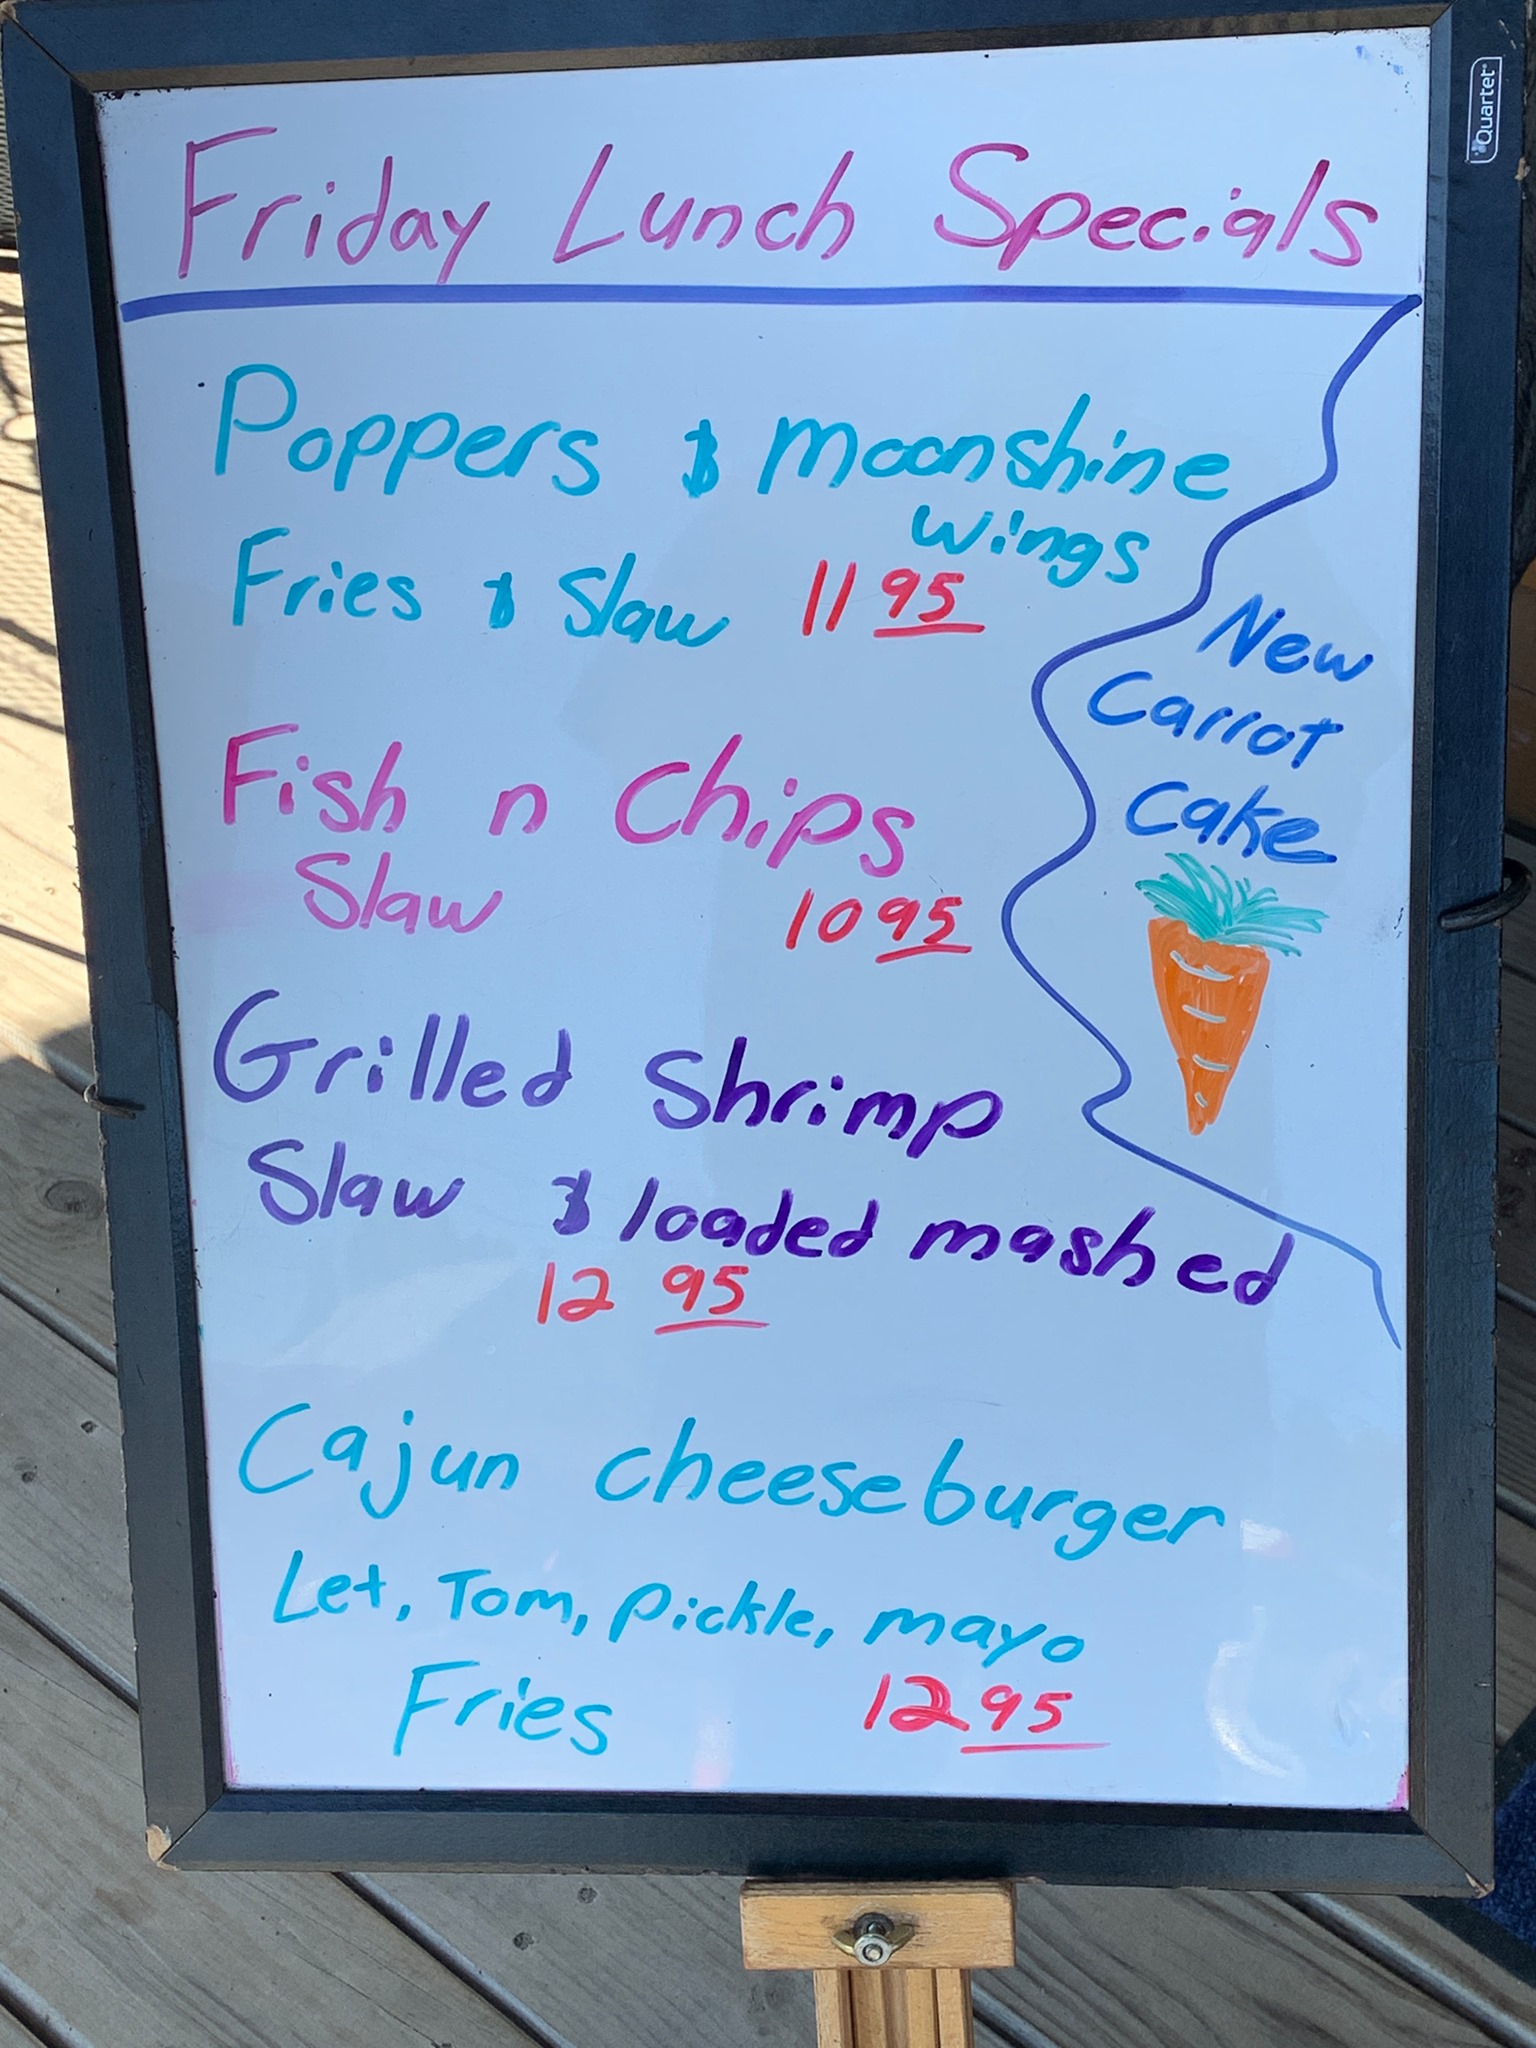 Quartet
Friday Lunch Specials
Poppers & Moonshine
wings
Fries & Slaw 11 95
Fish n Chips
Slaw 10 95
Grilled Shrimp
Slaw & loaded mashed
12 95
Cajun cheeseburger
Let, Tom, Pickle, mayo
Fries 12 95
New
Carrot
Cake